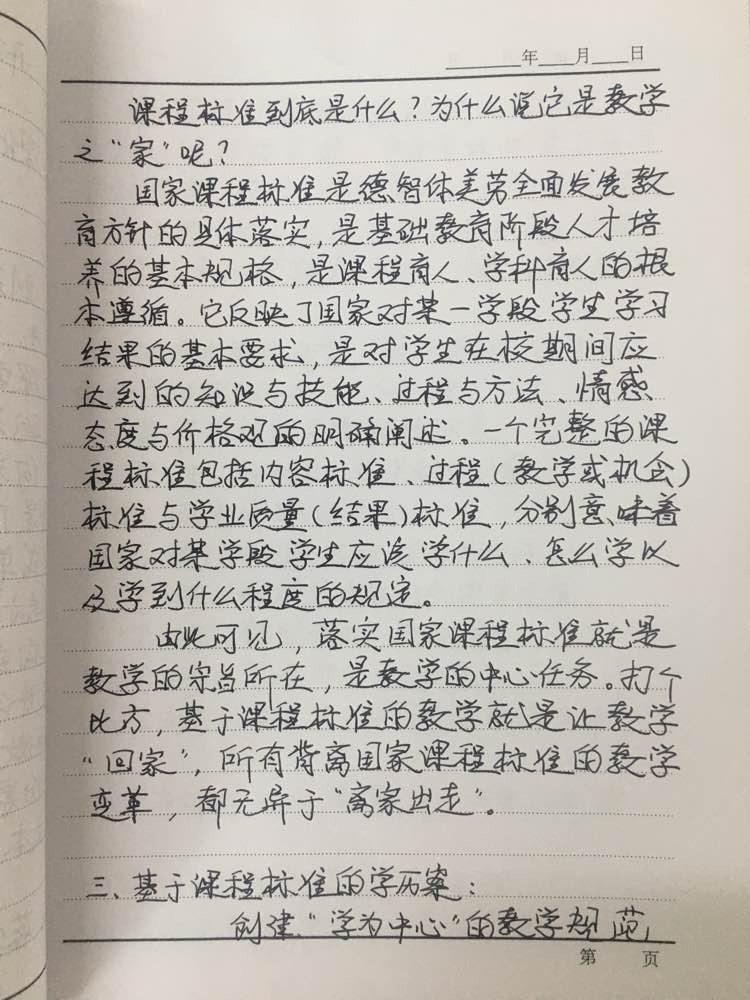 年 月 日
课程标准到底是什么?为什么说它是教学
之“家”呢?
国家课程标准是德智体美劳全面发展教
育方针的具体落实,是基础教育阶段人才培
养的基本规格,是课程育人、学科育人的根
本遵循。它反映了国家对某一学段学生学习
结果的基本要求,是对学生在校期间应
达到的知识与技能、过程与方法、情感
态度与价格观的明确阐述。一个完整的课
程标准包括内容标准、过程(教学或机会)
标准与学业质量(结果)标准,分别意味着
国家对某学段学生应该学什么、怎么学以
及学到什么程度的规定。
由此可见,落实国家课程标准就是
教学的宗旨所在,是教学的中心任务。打个
比方,基于课程标准的教学就是让教学
“回家”,所有背离国家课程标准的教学
变革,都无异于“离家出走”。
三、基于课程标准的学历案:
创建“学为中心”的教学规范
第 页